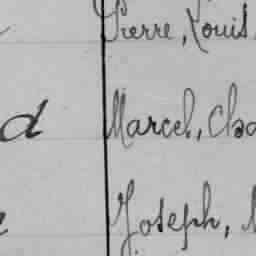 Pierre, Louis
d Marcel, Cha
Joseph,